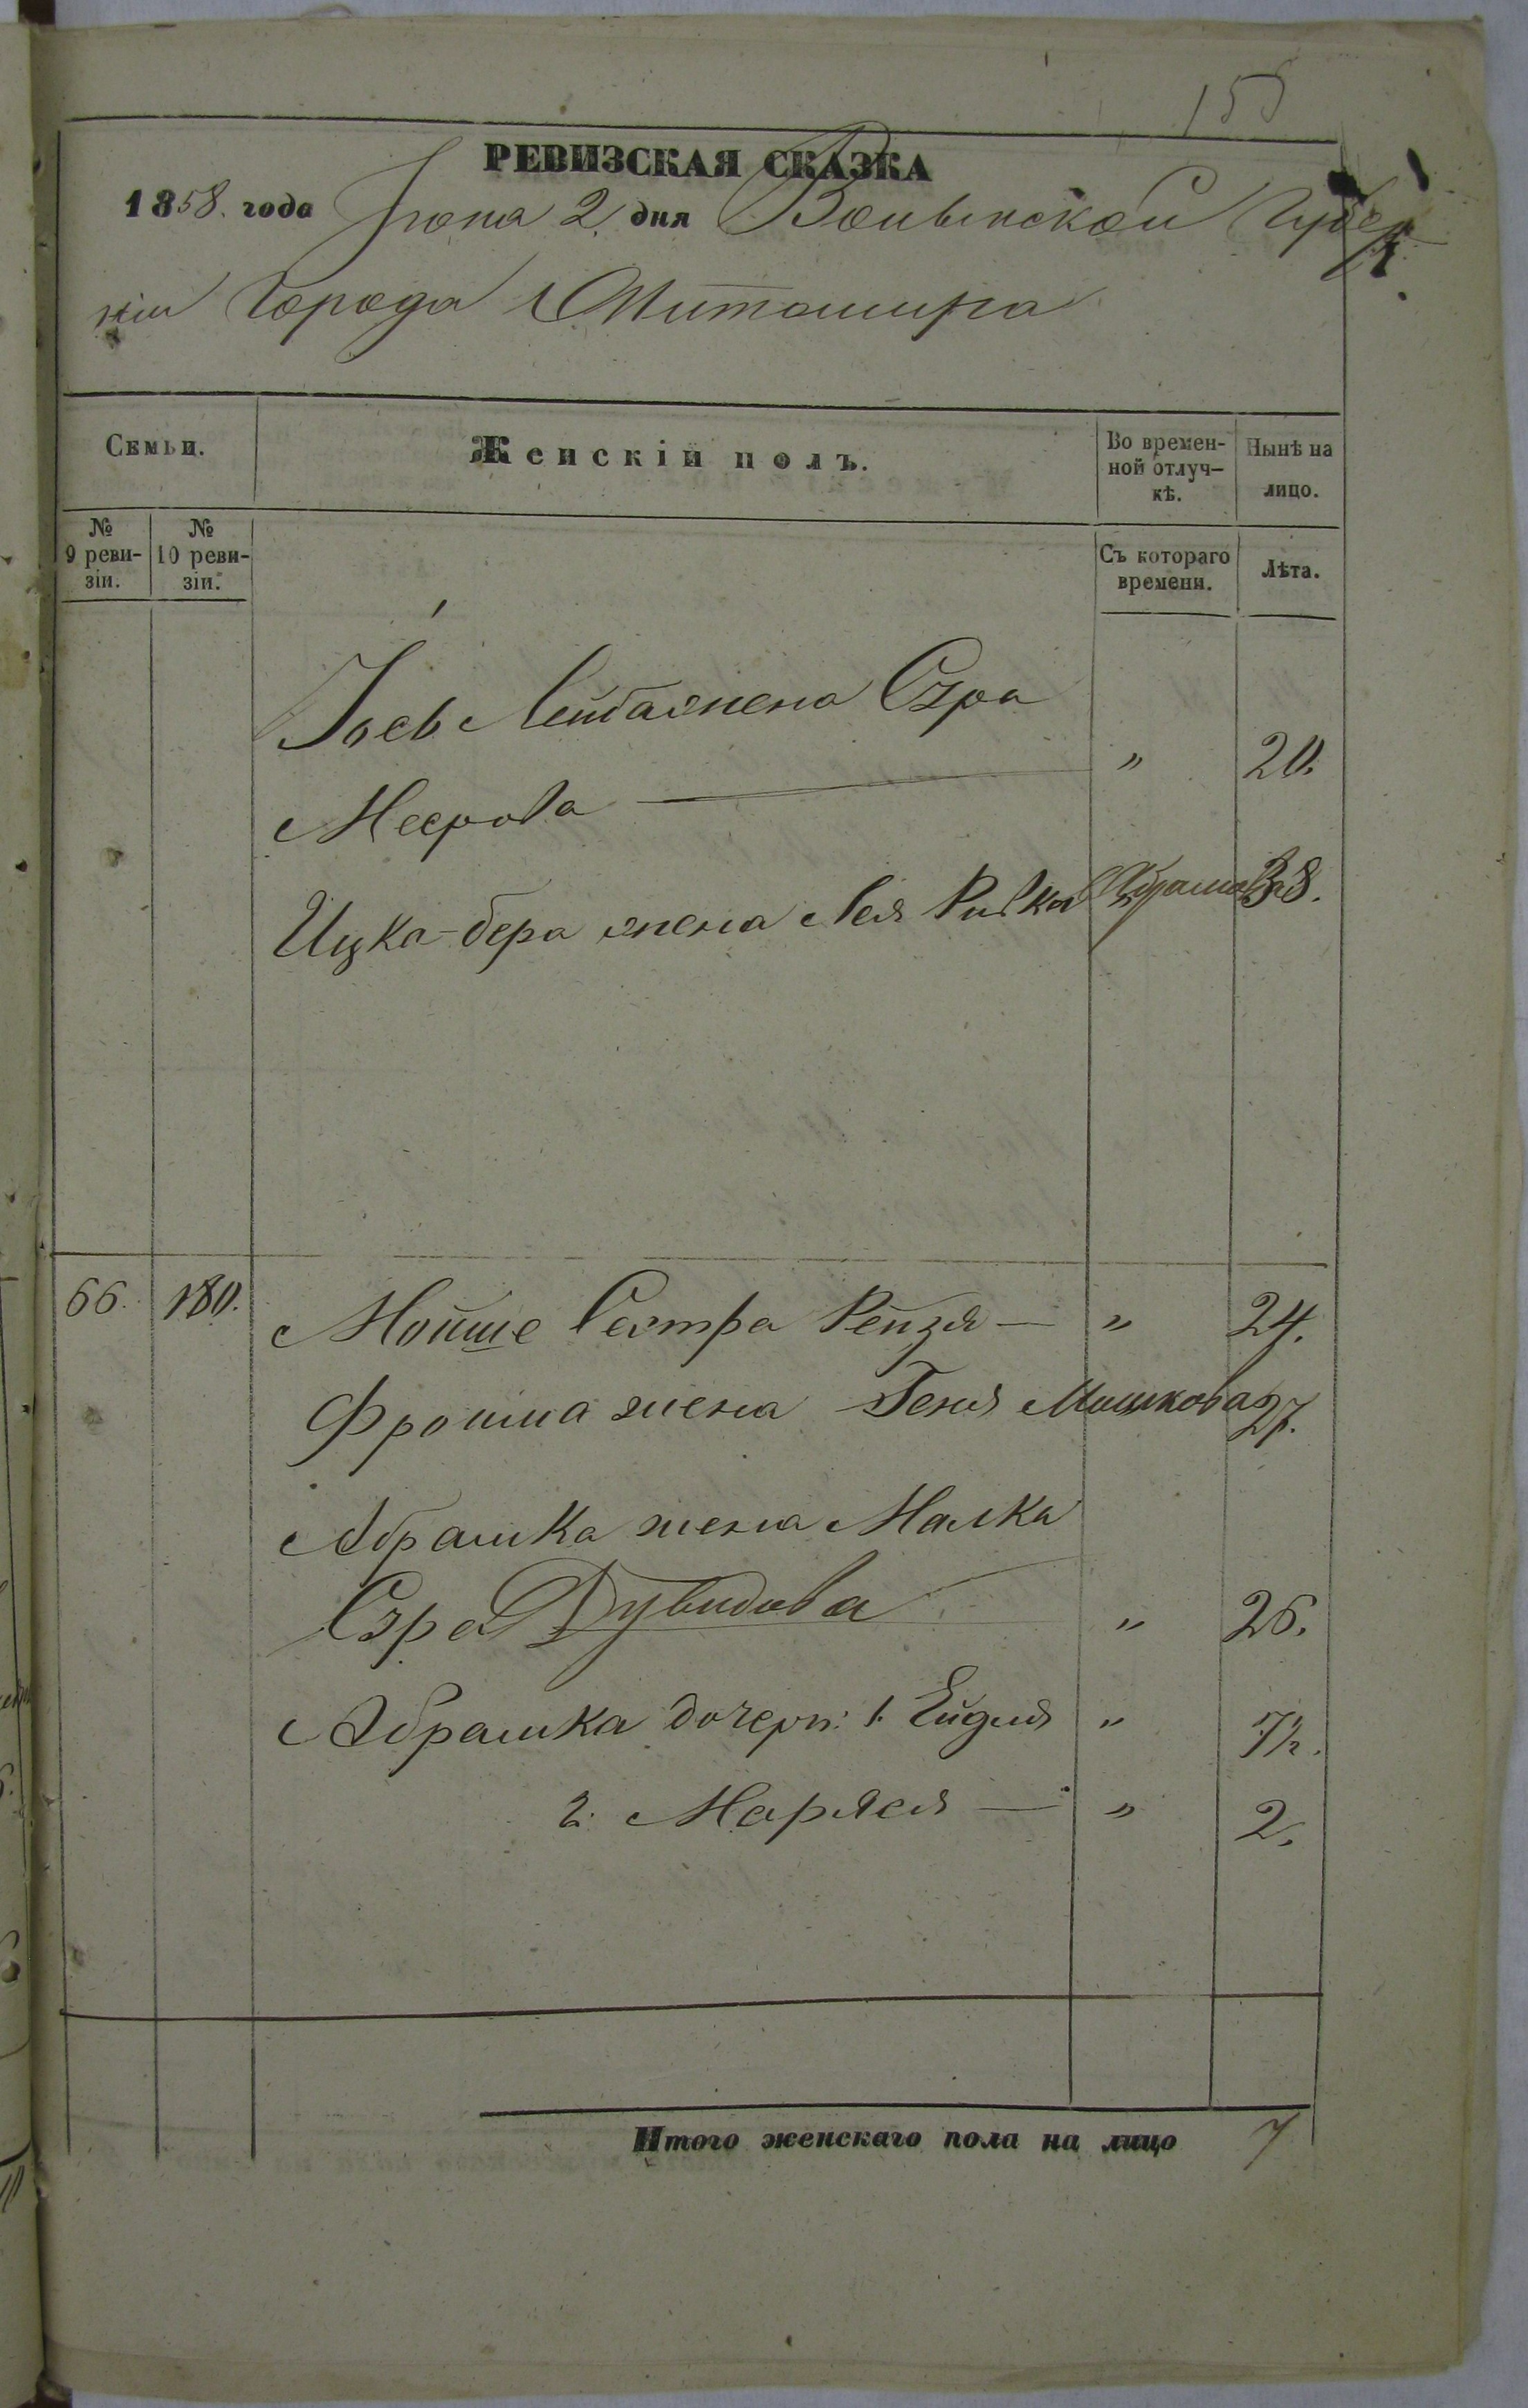 155
РЕВИЗСКАЯ СКАЗКА
1858. года Іюня 2 дня Волынской Губер
ніи Города Житомира
Семьи.
Женскій полъ.
Во времен-
ной отлуч-
кѣ.
Нынѣ на
лицо.
№
9 реви-
зіи.
№
10 реви-
зіи.
Съ котораго
времени.
Лѣта.
Лейба жена Сура
Меерова — " 20.
Ицка-бера жена Лея Ривка Абрамова 38.
66. 180. Мойше Сестра Рейзя — " 24.
Фроима жена Геня Мошкова 27.
Абрамка жена Малка
Сура Дувидова " 26.
Абрамка дочери: 1. Ейдля " 7½.
2. Маряся — " 2.
Итого женскаго пола на лицо 7